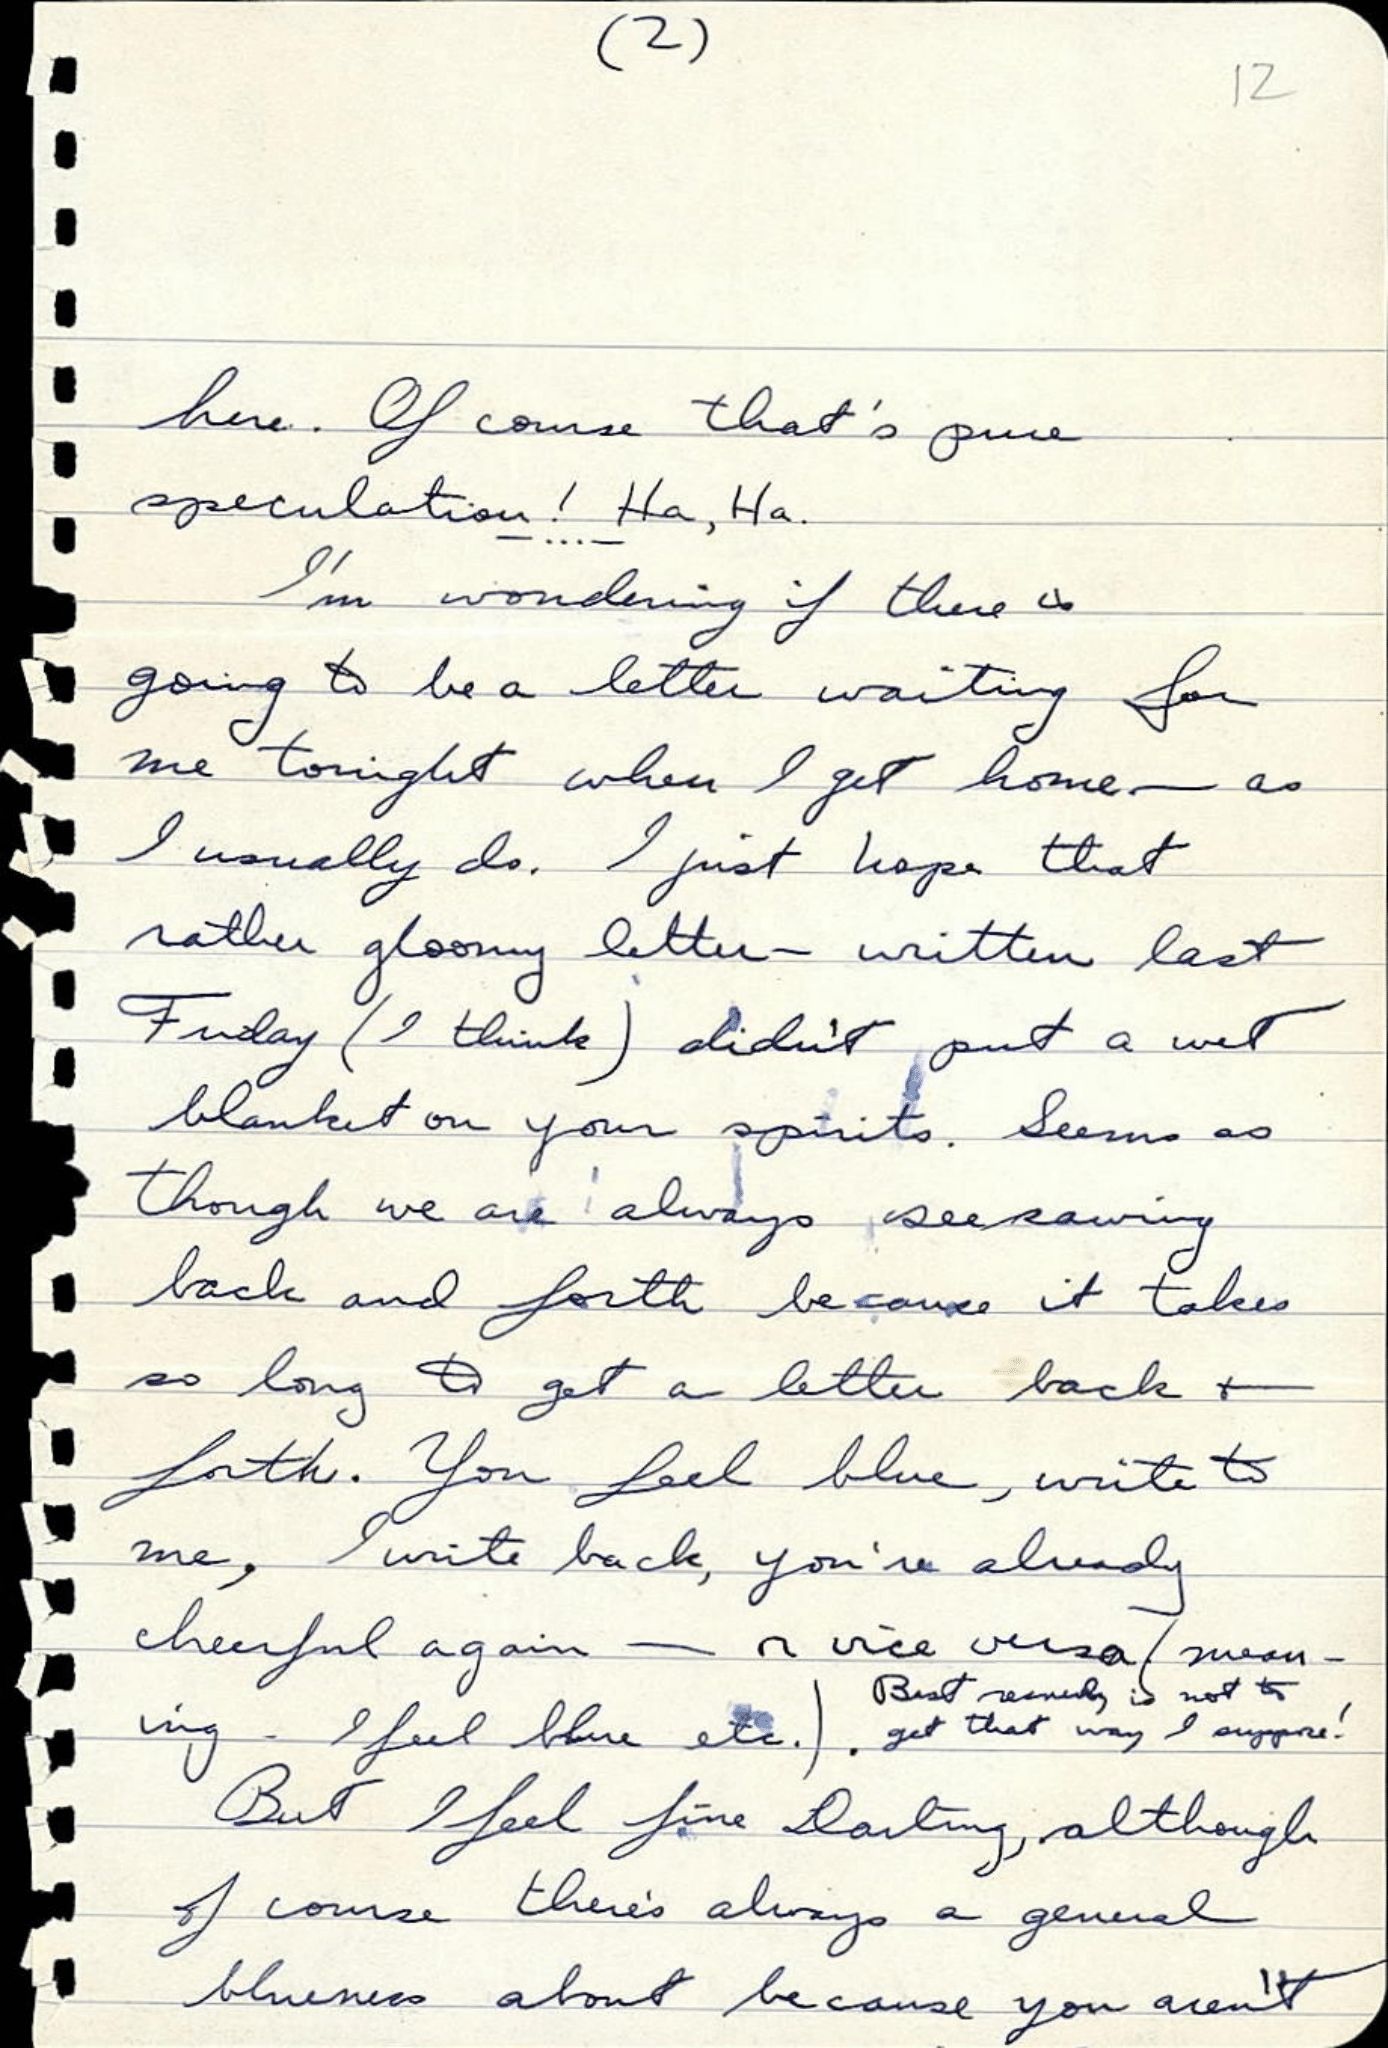 (2)
12
here. Of course that's pure
speculation! Ha, Ha.
I'm wondering if there is
going to be a letter waiting for
me tonight when I get home — as
I usually do. I just hope that
rather gloomy letter — written last
Friday (I think) didn't put a wet
blanket on your spirits. Seems as
though we are always seesawing
back and forth because it takes
so long to get a letter back +
forth. You feel blue, write to
me, I write back, you're already
cheerful again — or vice versa (mean-
ing - I feel blue etc.). Best remedy is not to
get that way I suppose!
But I feel fine Darling, although
of course there's always a general
blueness about because you aren't